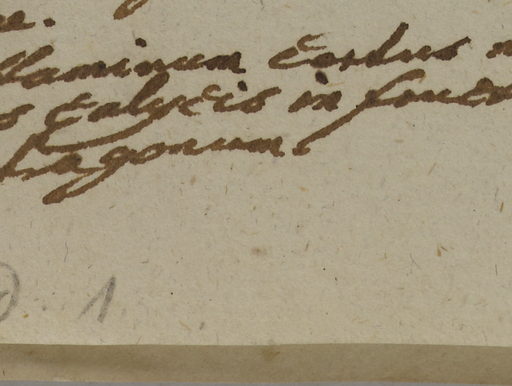 e.
llaminum Cordus n
s calycis in foven
tragonum.
1.